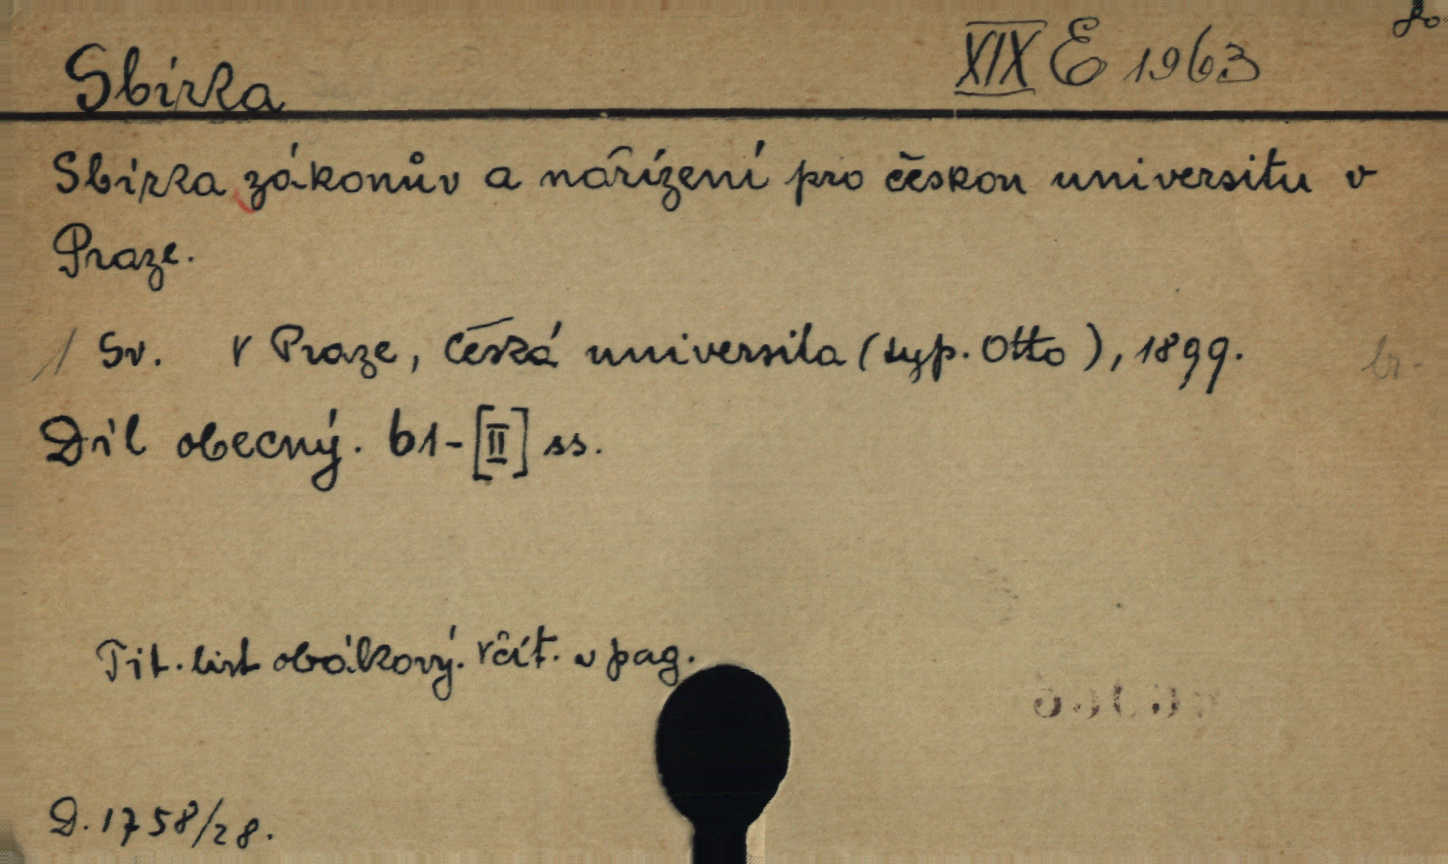 Sbírka XIX E 1963
Sbírka zákonův a nařízení pro českou universitu v
Praze.
Sv. V Praze, Česká universita (typ. Otto), 1899.
Díl obecný. 61-[II] ss.
Tit. list obálkový. včít. v pag.
D. 1758/28.